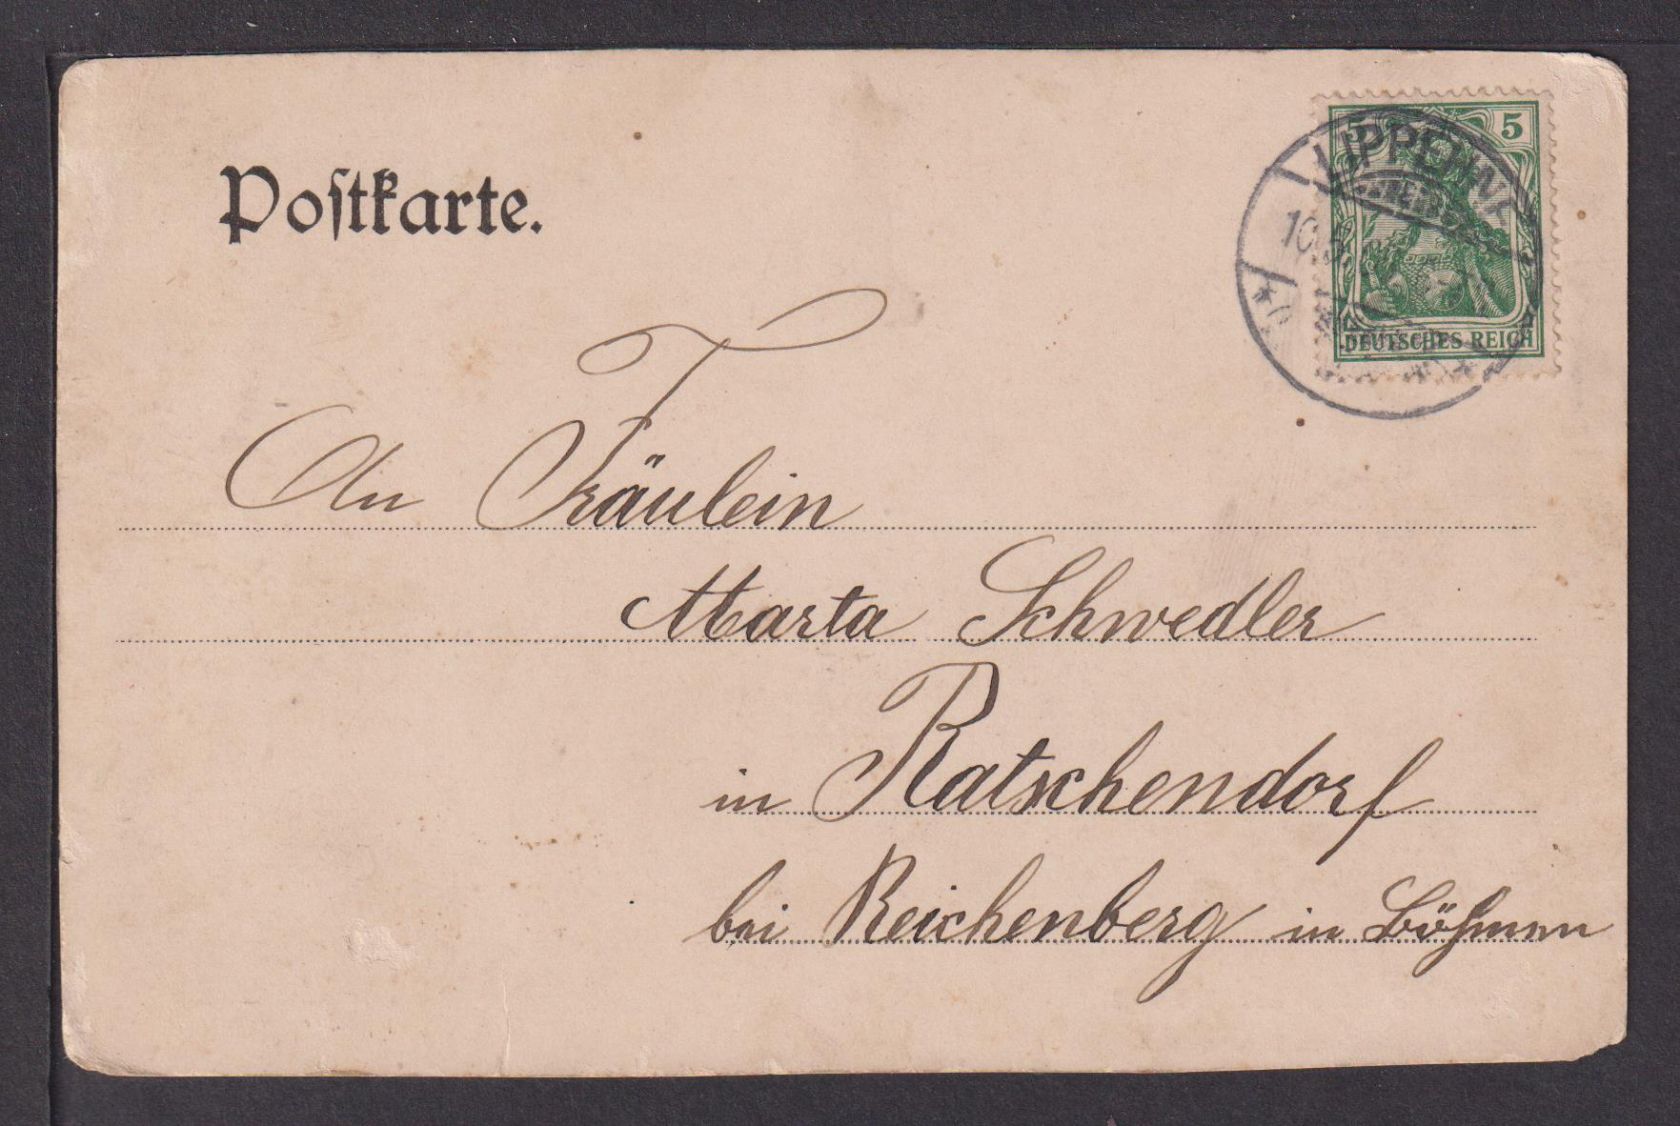 Postkarte.
5 5
LIPPEHNE
DEUTSCHES REICH
An Fräulein
Marta Schwedler
in Ratschendorf
bei Reichenberg in Böhmen